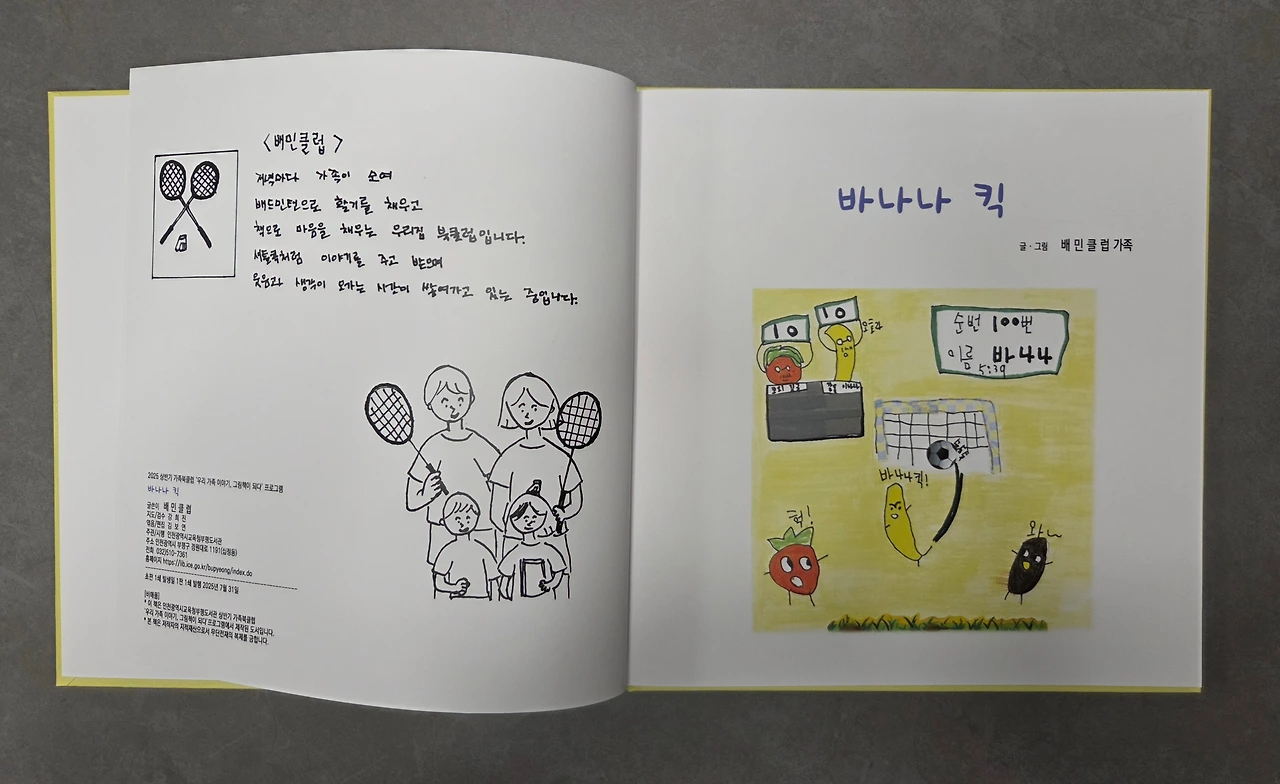 <배민클럽>
저녁마다 가족이 모여
배드민턴으로 활기를 채우고
책으로 마음을 채우는 우리집 북클럽입니다.
셔틀콕처럼 이야기를 주고 받으며
웃음과 생각이 오가는 시간이 쌓여가고 있는 중입니다.
2025 상반기 가족북클럽 '우리 가족 이야기, 그림책이 되다' 프로그램
바나나 킥
글쓴이 배민클럽
지도/감수 강희진
편집 김보연
주관/시행 인천광역시교육청부평도서관
주소 인천광역시 부평구 경원대로 1191(십정동)
전화 032)510-7361
홈페이지 https://lib.ice.go.kr/bupyeong/index.do
초판 1쇄 발행 2025년 7월 31일
[비매품]
* 이 책은 인천광역시교육청부평도서관 상반기 가족북클럽
'우리 가족 이야기, 그림책이 되다' 프로그램에서 제작된 도서입니다.
* 본 책은 저작자의 지적재산으로서 무단전재와 복제를 금합니다.
바나나 킥
글·그림 배민클럽 가족
10
10
오호라
순번 100번
이름 바나나
5:39
바나나킥!
헉!
와~